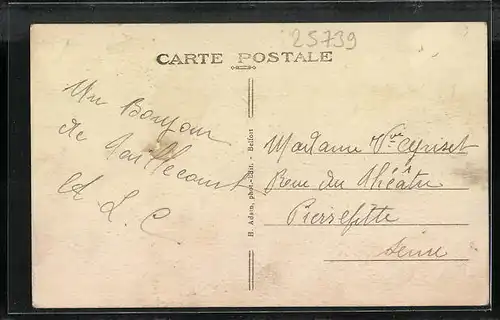 25739
CARTE POSTALE
Un Bonjour
de Taillecourt
A L C
H. Adam, phot.-édit. - Belfort
Madame Vve Cyriset
Rue du Théâtre
Pierrefitte
Seine